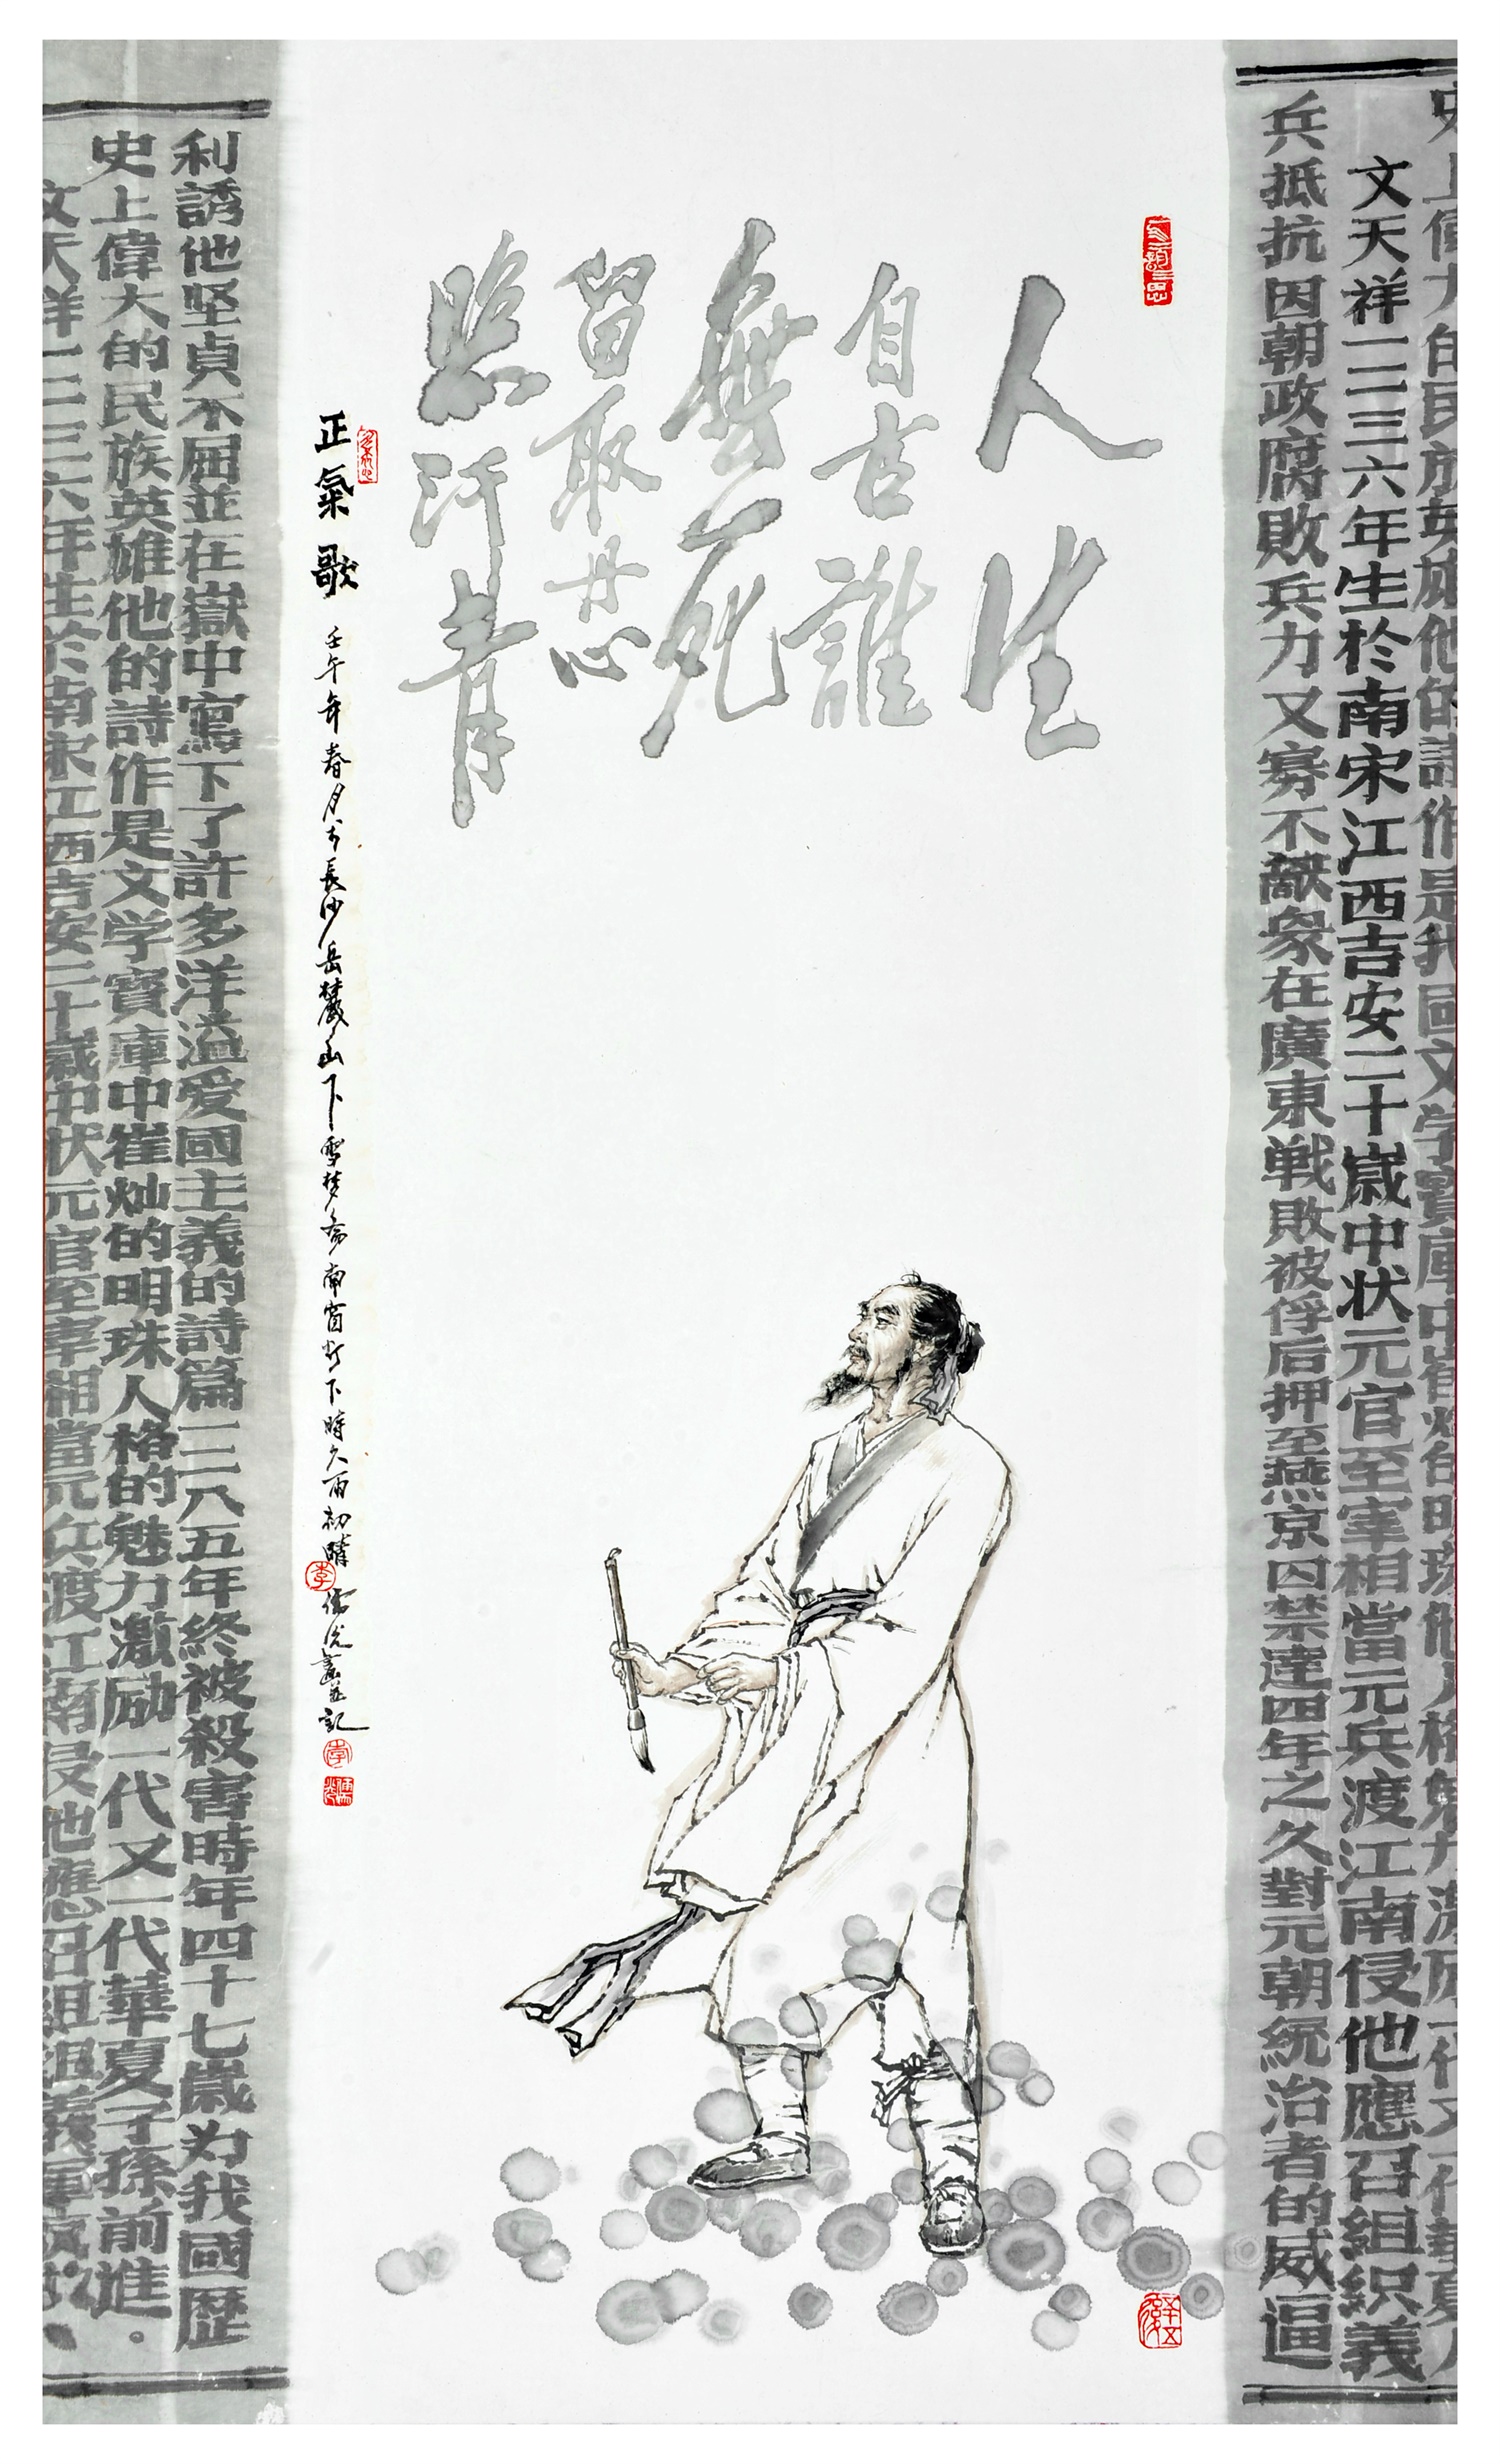 史上偉大的民族英雄他的詩作是我國文学寶庫中崔灿的明珠他人格魅力激励一代又一代華夏
文天祥一二三六年生於南宋江西吉安二十歲中状元官至宰相當元兵渡江南侵他應召組织義
兵抵抗因朝政腐敗兵力又寡不敵衆在廣東戦敗被俘后押至燕京囚禁達四年之久對元朝統治者的威逼
人生
自古誰
無死
留取丹心
照汗青
正氣歌 壬午年春月于長沙岳麓山下雪梦斋南窗灯下時久雨初晴 儒光畫並記
李
李
儒光
利誘他坚貞不屈並在獄中寫下了許多洋溢爱國主義的詩篇一二八五年終被殺害時年四十七歲为我國歷
史上偉大的民族英雄他的詩作是文学寶庫中崔灿的明珠人格的魅力激励一代又一代華夏子孫前進。
文天祥一二三六年生於南宋江西吉安二十歲中状元官至宰相當元兵渡江南侵他應召組